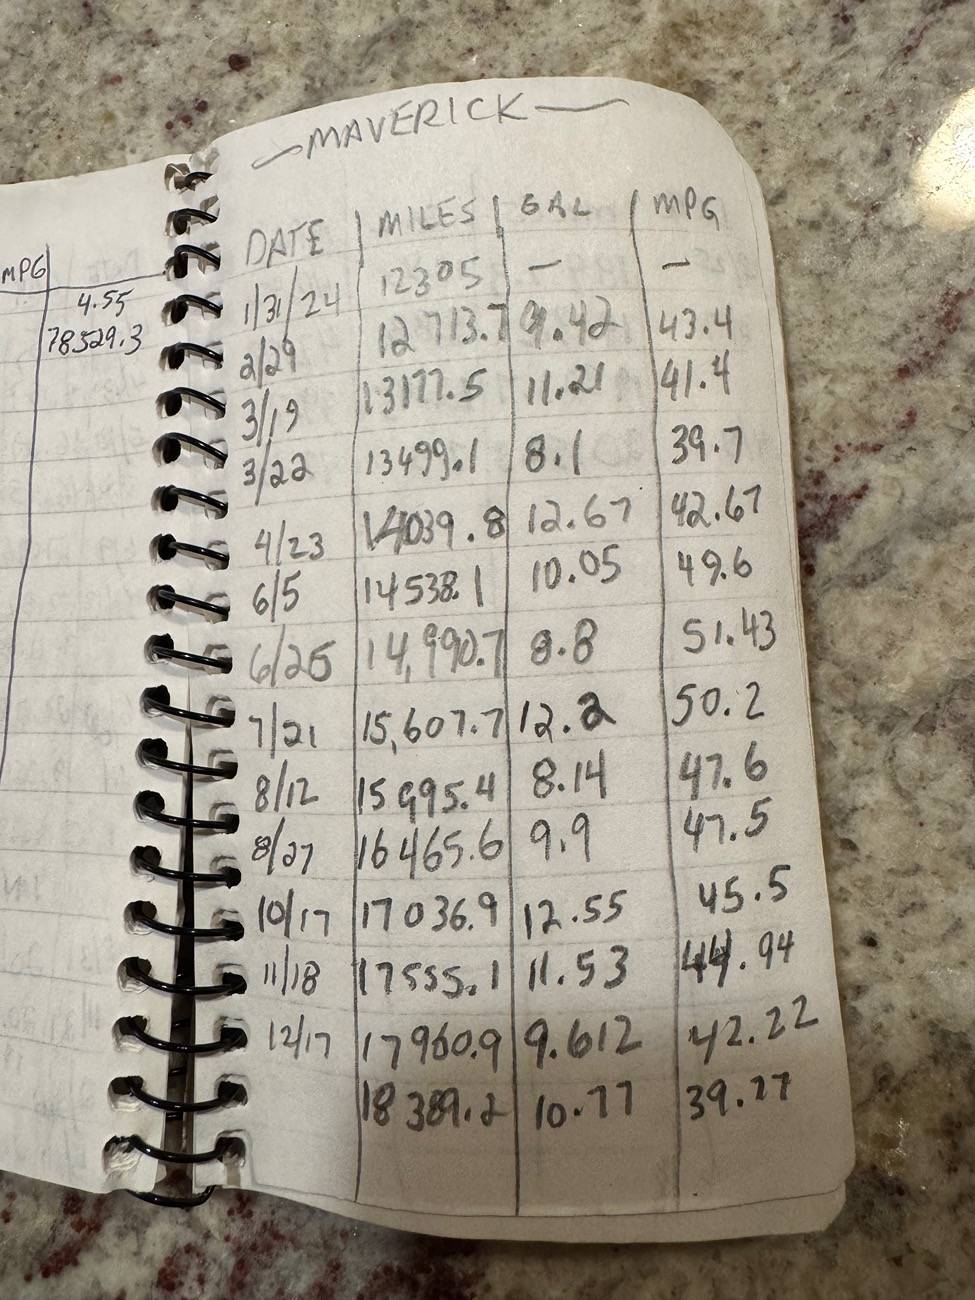 MPG
4.55
78529.3
MAVERICK
DATE MILES GAL MPG
1/31/24 12305 — —
2/29 12713.7 9.42 43.4
3/19 13177.5 11.21 41.4
3/22 13499.1 8.1 39.7
4/23 14039.8 12.67 42.67
6/5 14538.1 10.05 49.6
6/25 14,990.7 8.8 51.43
7/21 15,607.7 12.2 50.2
8/12 15995.4 8.14 47.6
8/27 16465.6 9.9 47.5
10/17 17036.9 12.55 45.5
11/18 17555.1 11.53 44.94
12/17 17960.9 9.612 42.22
18389.2 10.77 39.77